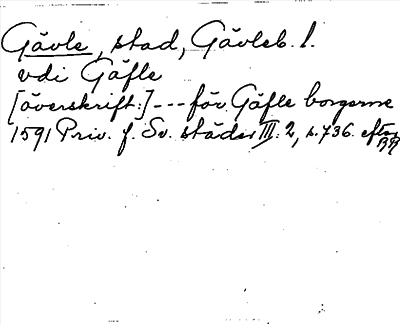 Gävle, stad, Gävleb. l.
vdi Gäfle
[överskrift:] --- för Gäfle borgerne
1591 Priv. f. Sv. städer III: 2, s. 736. efter